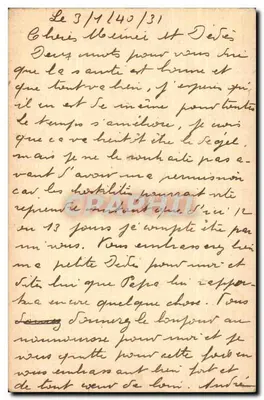 Le 3/1/40/31
Cheres Mémée et Dédés
Deux mots pour vous dire
que la santé est bonne et
que tout va bien, j'espere qu'
il en est de même pour toutes
le temps s'améliore, je crois
que ca va bientôt être le dégel.
mais je ne le souhaite pas a-
vant d'avoir ma permission
car les hostilité pourrait vite
reprendre surtout que d'ici 12
ou 13 jours je compte être par
mi vous. Vous embrasserez bien
ma petite Dédés pour moi et
dites lui que Papa lui rappor-
tera encore quelque chose. Vous
donnerez le bonjour au
nounousse pour moi et je
vous quitte pour cette fois en
vous embrassant bien fort et
de tout cœur de loin. André